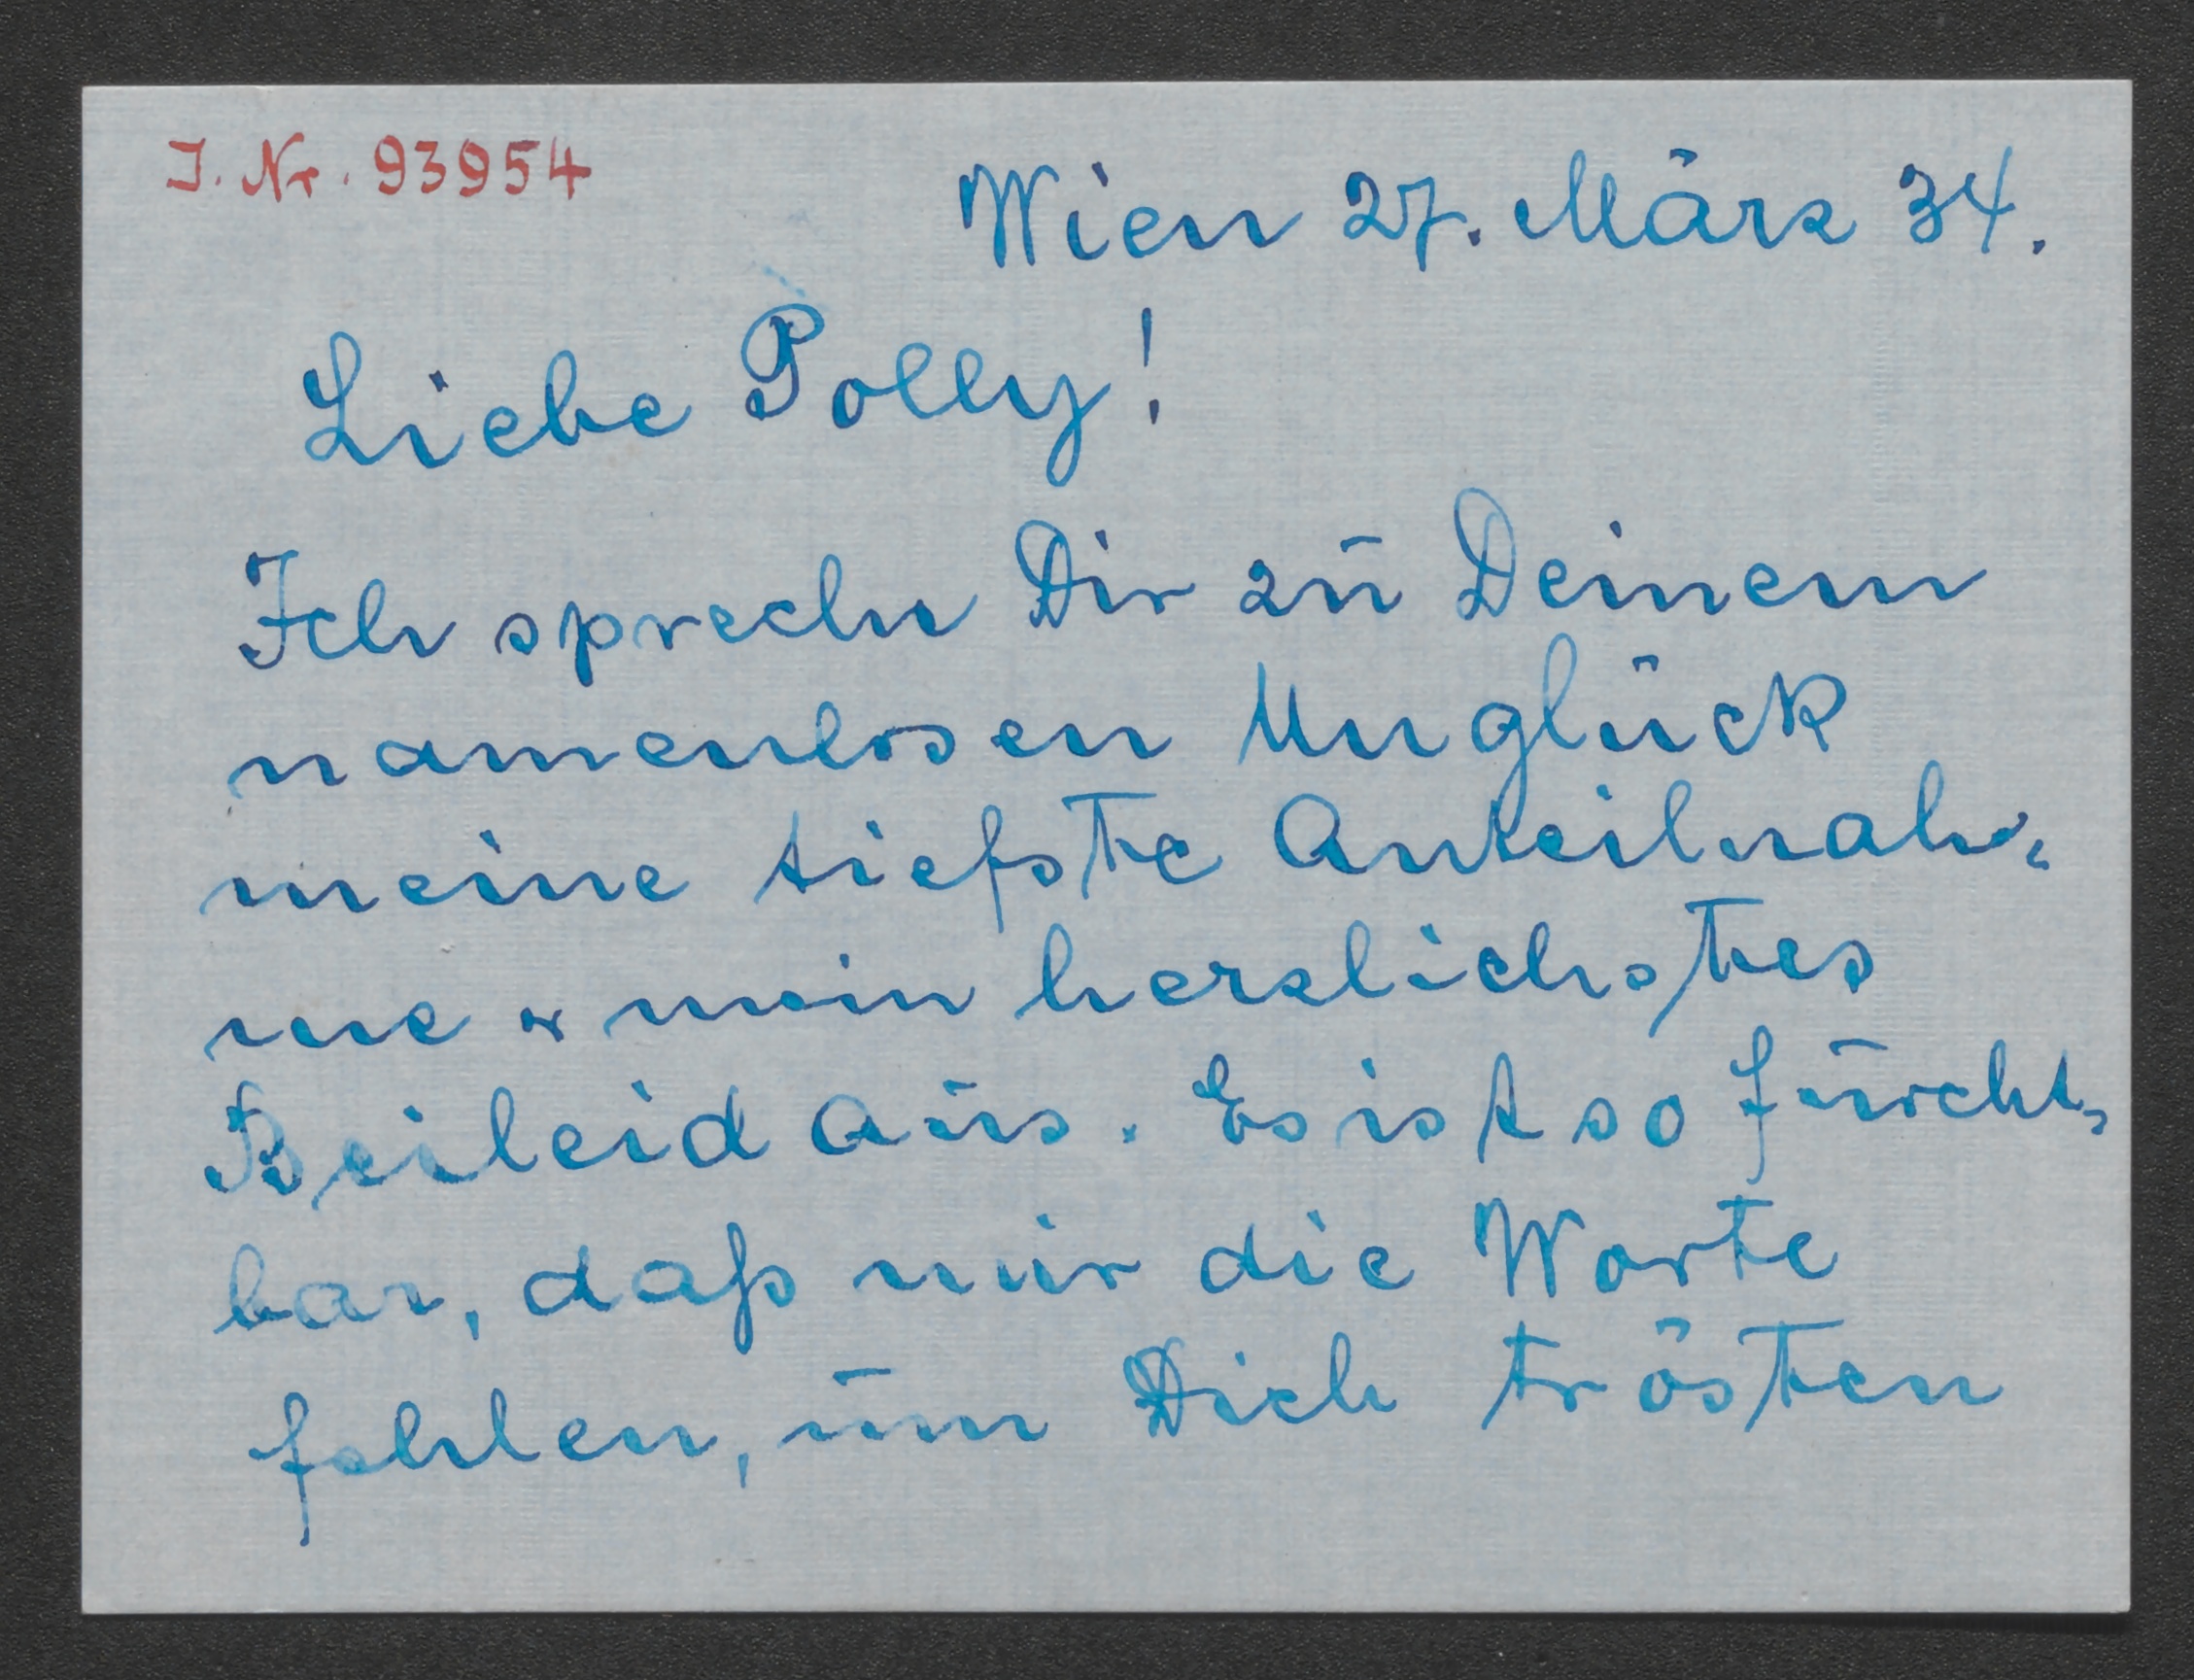 J. Nr. 93954
Wien 27. März 34.
Liebe Polly!
Ich spreche Dir zu Deinem
namenlosen Unglück
meine tiefste Anteilnah-
me & mein herzlichstes
Beileid aus. Es ist so furcht-
bar, daß mir die Worte
fehlen, um Dich trösten